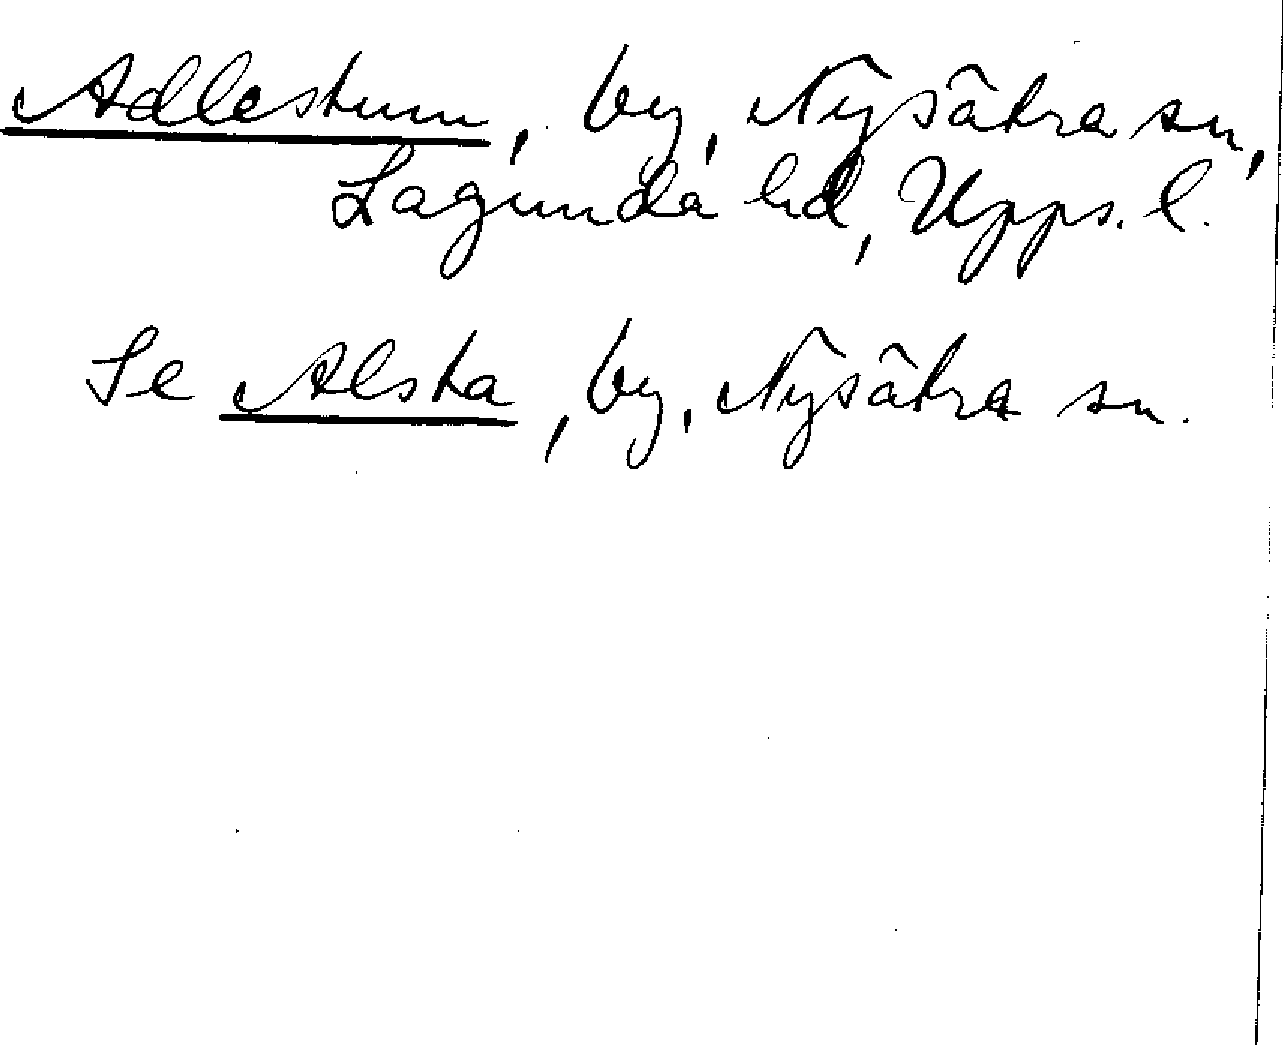 Adleskum, by, Nysätra sn,
Lagunda hd, Upps. l.
Se Alska, by, Nysätra sn.